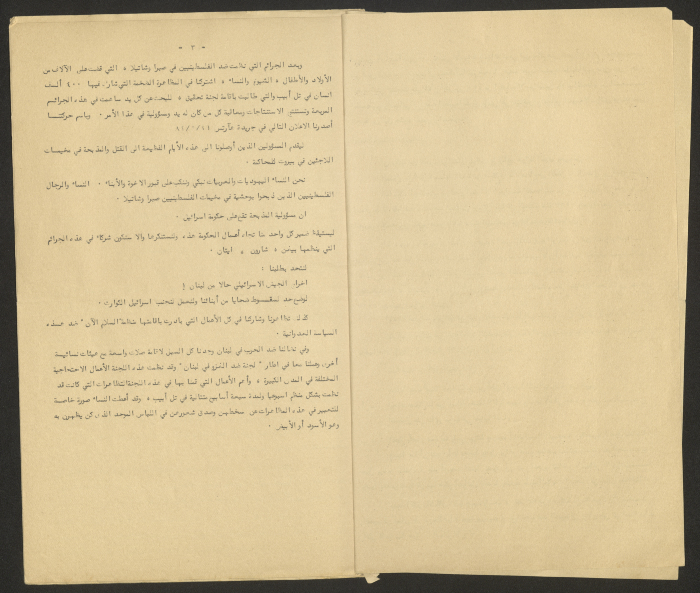 - ٢ -
وبعد الجرائم التي تلامت ضد الفلسطينيين في صبرا وشاتيلا ، التي قضت على الآلاف من
الأولاد والأطفال ، الشيوخ والنساء ، اشتركنا في المظاهرة الضخمة التي شارك فيها ٤٠٠ ألف
انسان في تل أبيب والتي طالبت باقامة لجنة تحقيق ، للبحث عن كل يد ساهمت في هذه الجرائم
المريعة وتستنتج الاستنتاجات ومعاقبة كل من كان له يد ومسؤولية في هذا الأمر . وباسم حركتنا
أصدرنا الاعلان التالي في جريدة هآرتس
ليقدم المسؤولين الذين أوصلونا الى هذه الأيام الفظيعة الى القتل والمذبحة في مخيمات
اللاجئين في بيروت للمحاكمة .
نحن النساء اليهوديات والعربيات نبكي ونتكب على قبور الاخوة والأبناء . النساء والرجال
الفلسطينيين الذين ذبحوا بوحشية في مخيمات الفلسطينيين صبرا وشاتيلا .
ان مسؤولية المذبحة تقع على حكومة اسرائيل .
ليستيقظ ضمير كل واحد منا تجاه أعمال الحكومة هذه ونستنكرها والا سنكون شركاء في هذه الجرائم
التي ينظمها بيغن ، شارون ، ايتان .
لنتحد بطلبنا :
اخراج الجيش الاسرائيلي حالا من لبنان !
لوضع حد لسقوط ضحايا من أبنائنا ولنعمل لتجنب اسرائيل الكوارث .
كذلك تظاهرنا وشاركنا في كل الأعمال التي بادرت باقامتها منظمة السلام الآن " ضد هذه
السياسة العدوانية .
وفي نضالنا ضد الحرب في لبنان وجدنا كل السبل لاقامة صلات واسعة مع هيئات نسائية
أخرى وعملنا معا في اطار " لجنة ضد الغزو في لبنان " وقد نظمت هذه اللجنة الأعمال الاحتجاجية
المختلفة في المدن الكبيرة ، وأهم الأعمال التي قمنا بها في هذه اللجنة المظاهرات التي كانت قد
نظمت بشكل منظم اسبوعيا ولمدة سبعة أسابيع متتالية في تل أبيب ، وقد أعطت النساء صورة خاصة
للتعبير في هذه المظاهرات عن سخطهن ومدى شعورهن في اللباس الموحد الذي كن يظهرن به
وهو الأسود أو الأبيض .